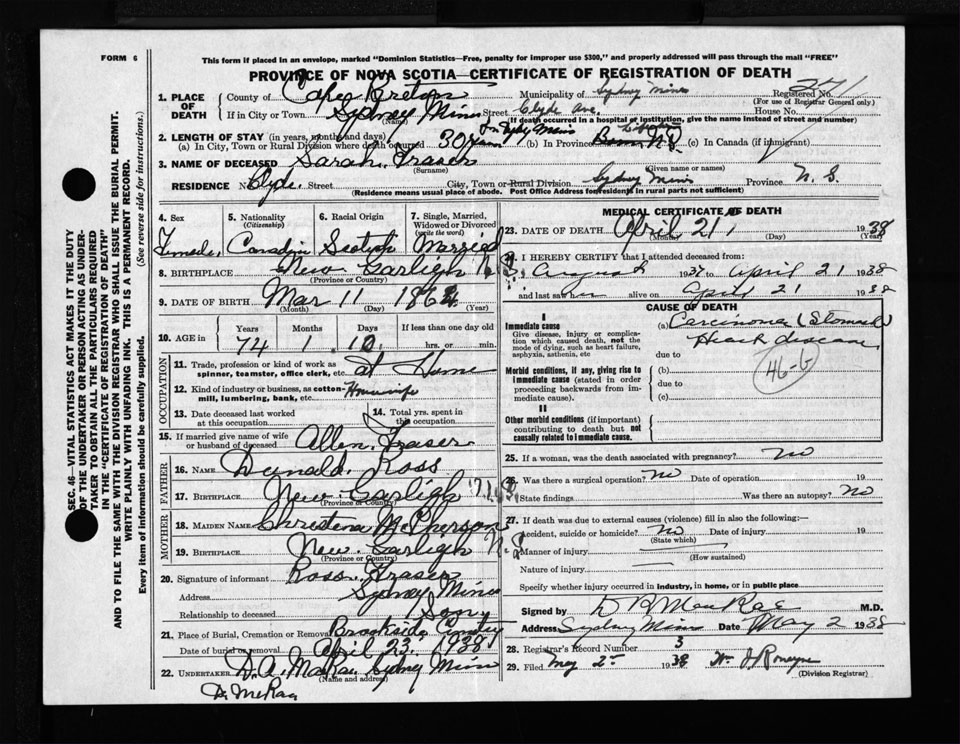 FORM 6
This form if placed in an envelope, marked "Dominion Statistics—Free, penalty for improper use $300," and properly addressed will pass through the mail "FREE"
PROVINCE OF NOVA SCOTIA—CERTIFICATE OF REGISTRATION OF DEATH
SEC. 46—VITAL STATISTICS ACT MAKES IT THE DUTY
OF THE UNDERTAKER OR PERSON ACTING AS UNDER-
TAKER TO OBTAIN ALL THE PARTICULARS REQUIRED
IN THE "CERTIFICATE OF REGISTRATION OF DEATH"
AND TO FILE THE SAME WITH THE DIVISION REGISTRAR WHO SHALL ISSUE THE BURIAL PERMIT.
WRITE PLAINLY WITH UNFADING INK. THIS IS A PERMANENT RECORD.
Every item of information should be carefully supplied. (See reverse side for instructions.)
1. PLACE OF DEATH County of Cape Breton Municipality of Sydney Mines Registered No.
(For use of Registrar General only.)
If in City or Town Sydney Mines Street Clyde Ave. House No.
(Name) (If death occurred in a hospital of institution, give the name instead of street and number)
2. LENGTH OF STAY (in years, months and days)
(a) In City, Town or Rural Division where death occurred 30 years (b) In Province Born N.S. (c) In Canada (if immigrant)
3. NAME OF DECEASED Sarah Fraser
(Surname) (Given name or names)
RESIDENCE Clyde Street City, Town or Rural Division Sydney Mines Province N.S.
(Residence means usual place of abode. Post Office Address for residents in rural parts not sufficient)
4. Sex 5. Nationality 6. Racial Origin 7. Single, Married, Widowed or Divorced
(Citizenship) (write the word)
Female Canadian Scotch Married
8. BIRTHPLACE New Carligh N.S.
(Province or Country)
9. DATE OF BIRTH Mar 11 1864
(Month) (Day) (Year)
10. AGE in Years Months Days If less than one day old
74 1 10 hrs. or min.
OCCUPATION
11. Trade, profession or kind of work as spinner, teamster, office clerk, etc. at Home
12. Kind of industry or business, as cotton mill, lumbering, bank, etc. Housewife
13. Date deceased last worked at this occupation 14. Total yrs. spent in this occupation
15. If married give name of wife or husband of deceased Allen Fraser
FATHER
16. NAME Donald Ross
17. BIRTHPLACE New Carligh
(Province or Country)
MOTHER
18. MAIDEN NAME McPherson
19. BIRTHPLACE New Carligh N.S.
(Province or Country)
20. Signature of informant Ross Fraser
Address Sydney Mines
Relationship to deceased Son
21. Place of Burial, Cremation or Removal Brookside
Date of burial or removal April 23 1938
22. UNDERTAKER D.A. MacRae, Sydney Mines
(Name and address)
D. McRae
MEDICAL CERTIFICATE OF DEATH
23. DATE OF DEATH April 21 1938
(Month) (Day) (Year)
24. I HEREBY CERTIFY that I attended deceased from:
August 1938 to April 21 1938
and last saw her alive on April 21 1938
CAUSE OF DEATH
I
Immediate cause (a) Carcinoma (Stomach)
Give disease, injury or complica-
tion which caused death, not the
mode of dying, such as heart failure,
asphyxia, asthenia, etc
Heart disease
due to
46-b
Morbid conditions, if any, giving rise to (b)
immediate cause (stated in order due to
proceeding backwards from im-
mediate cause). (c)
II
Other morbid conditions (if important)
contributing to death but not
causally related to immediate cause.
25. If a woman, was the death associated with pregnancy? no
26. Was there a surgical operation? no Date of operation 19
State findings Was there an autopsy? No
27. If death was due to external causes (violence) fill in also the following:—
Accident, suicide or homicide? no Date of injury 19
(State which)
Manner of injury
(How sustained)
Nature of injury
Specify whether injury occurred in industry, in home, or in public place
Signed by D R MacRae M.D.
Address Sydney Mines Date May 2 1938
28. Registrar's Record Number 3
29. Filed May 2nd 1938
(Division Registrar)